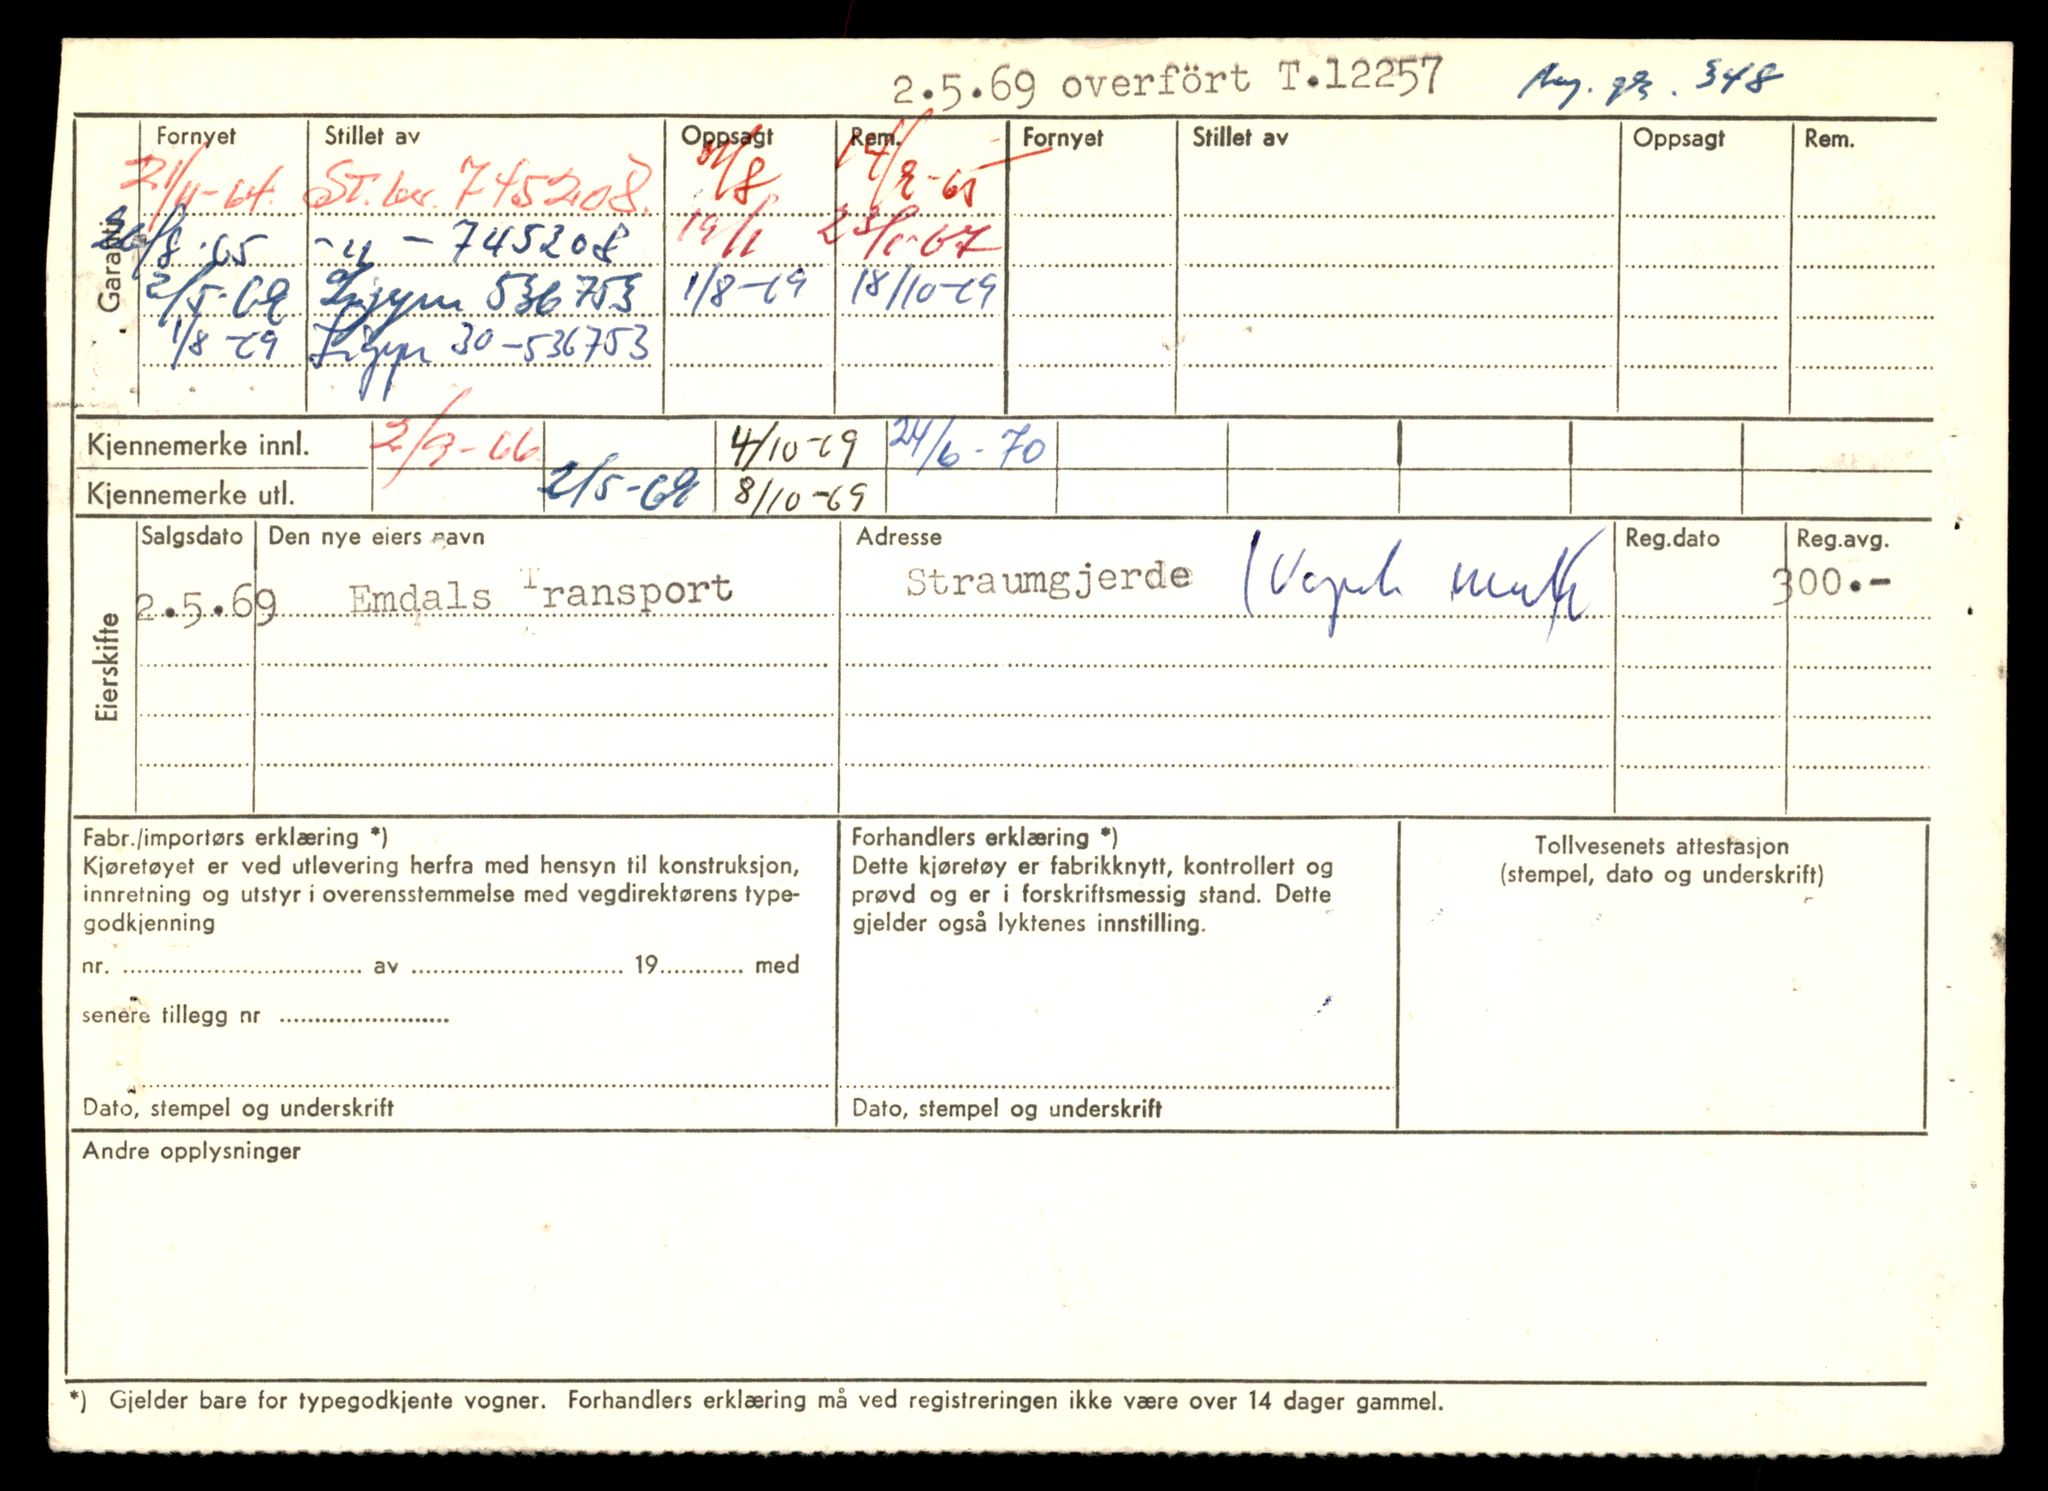 2.5.69 overfört T.12257 348
Garanti
Fornyet Stillet av Oppsagt Rem. Fornyet Stillet av Oppsagt Rem.
21/11-64. St.br. 745208. /8 14/8-65
26/8.65 -"- 745208 19/1 23/1-67
2/5-69 536753 1/8-69 18/10-69
1/8-69 30-536753
Kjennemerke innl. 2/9-66 4/10-69 24/6-70
Kjennemerke utl. 2/5-69 8/10-69
Eierskifte
Salgsdato Den nye eiers navn Adresse Reg.dato Reg.avg.
2.5.69 Emdals Transport Straumgjerde 300.-
Fabr./importørs erklæring *)
Kjøretøyet er ved utlevering herfra med hensyn til konstruksjon,
innretning og utstyr i overensstemmelse med vegdirektørens type-
godkjenning
nr. .......... av .......... 19.......... med
senere tillegg nr ..........
Dato, stempel og underskrift
Forhandlers erklæring *)
Dette kjøretøy er fabrikknytt, kontrollert og
prøvd og er i forskriftsmessig stand. Dette
gjelder også lyktenes innstilling.
Dato, stempel og underskrift
Tollvesenets attestasjon
(stempel, dato og underskrift)
Andre opplysninger
*) Gjelder bare for typegodkjente vogner. Forhandlers erklæring må ved registreringen ikke være over 14 dager gammel.